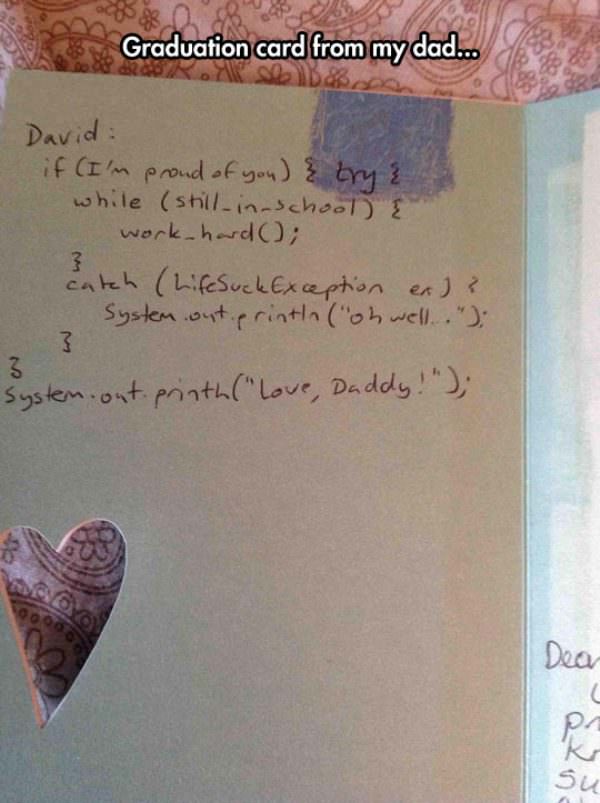 Graduation card from my dad...
David:
if (I'm proud of you) { try {
while (still_in_school) {
work_hard();
}
catch (LifeSuckException ex) {
System.out.println("oh well..");
}
}
System.out.println("Love, Daddy!");
Dear